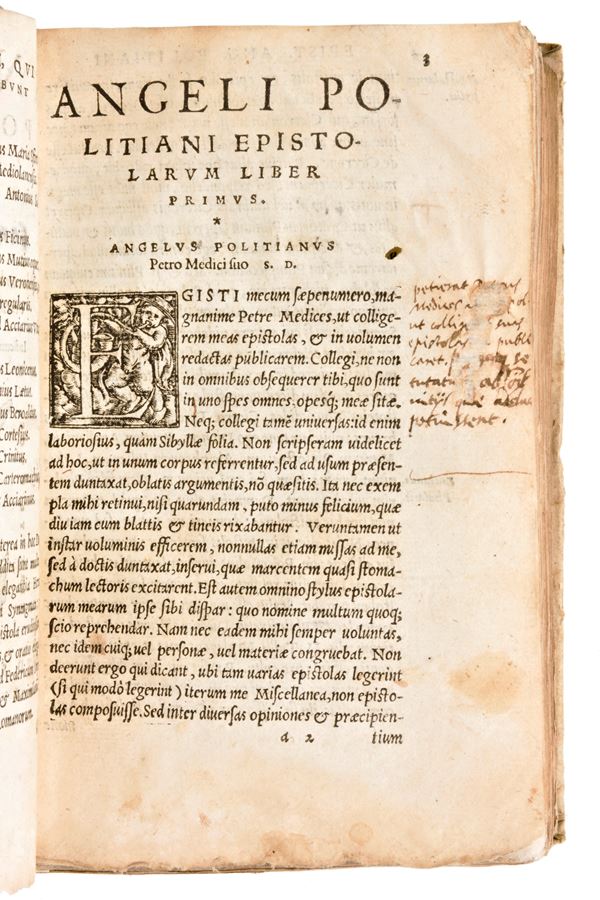 3
ANGELI PO-
LITIANI EPISTO-
LARVM LIBER
PRIMVS.
*
ANGELVS POLITIANVS
Petro Medici suo S. D.
EGISTI mecum sæpenumero, ma-
gnanime Petre Medices, ut collige-
rem meas epistolas, & in uolumen
redactas publicarem. Collegi, ne non
in omnibus obsequerer tibi, quo sunt
in uno spes omnes, opesq; meæ sitæ.
Neq; collegi tamē uniuersas: id enim
laboriosius, quàm Sibyllæ folia. Non scripseram uidelicet
ad hoc, ut in unum corpus referrentur, sed ad usum præsen-
tem duntaxat, oblatis argumentis, nō quæsitis. Ita nec exem
pla mihi retinui, nisi quarundam, puto minus felicium, quæ
diu iam cum blattis & tineis rixabantur. Veruntamen ut
instar uoluminis efficerem, nonnullas etiam missas ad me,
sed à doctis duntaxat, inserui, quæ marcentem quasi stoma-
chum lectoris excitarent. Est autem omnino stylus epistola-
rum mearum ipse sibi dispar: quo nomine multum quoq;
scio reprehendar. Nam nec eadem mihi semper uoluntas,
nec idem cuiq; uel personæ, uel materiæ congruebat. Non
deerunt ergo qui dicant, ubi tam uarias epistolas legerint
(si qui modò legerint) iterum me Miscellanea, non episto-
las composuisse. Sed inter diuersas opiniones & præcipien-
a 2 tium
QVI
Maria
Antonius
Ficinus,
Veronensis
Leonicenus
Lætus,
Cortesius,
Crinitus,
Acciarinus,